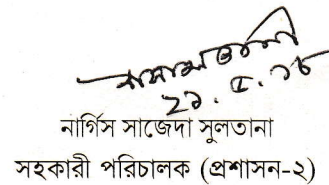 ২১.৫.১৮
নার্গিস সাজেদা সুলতানা
সহকারী পরিচালক (প্রশাসন-২)